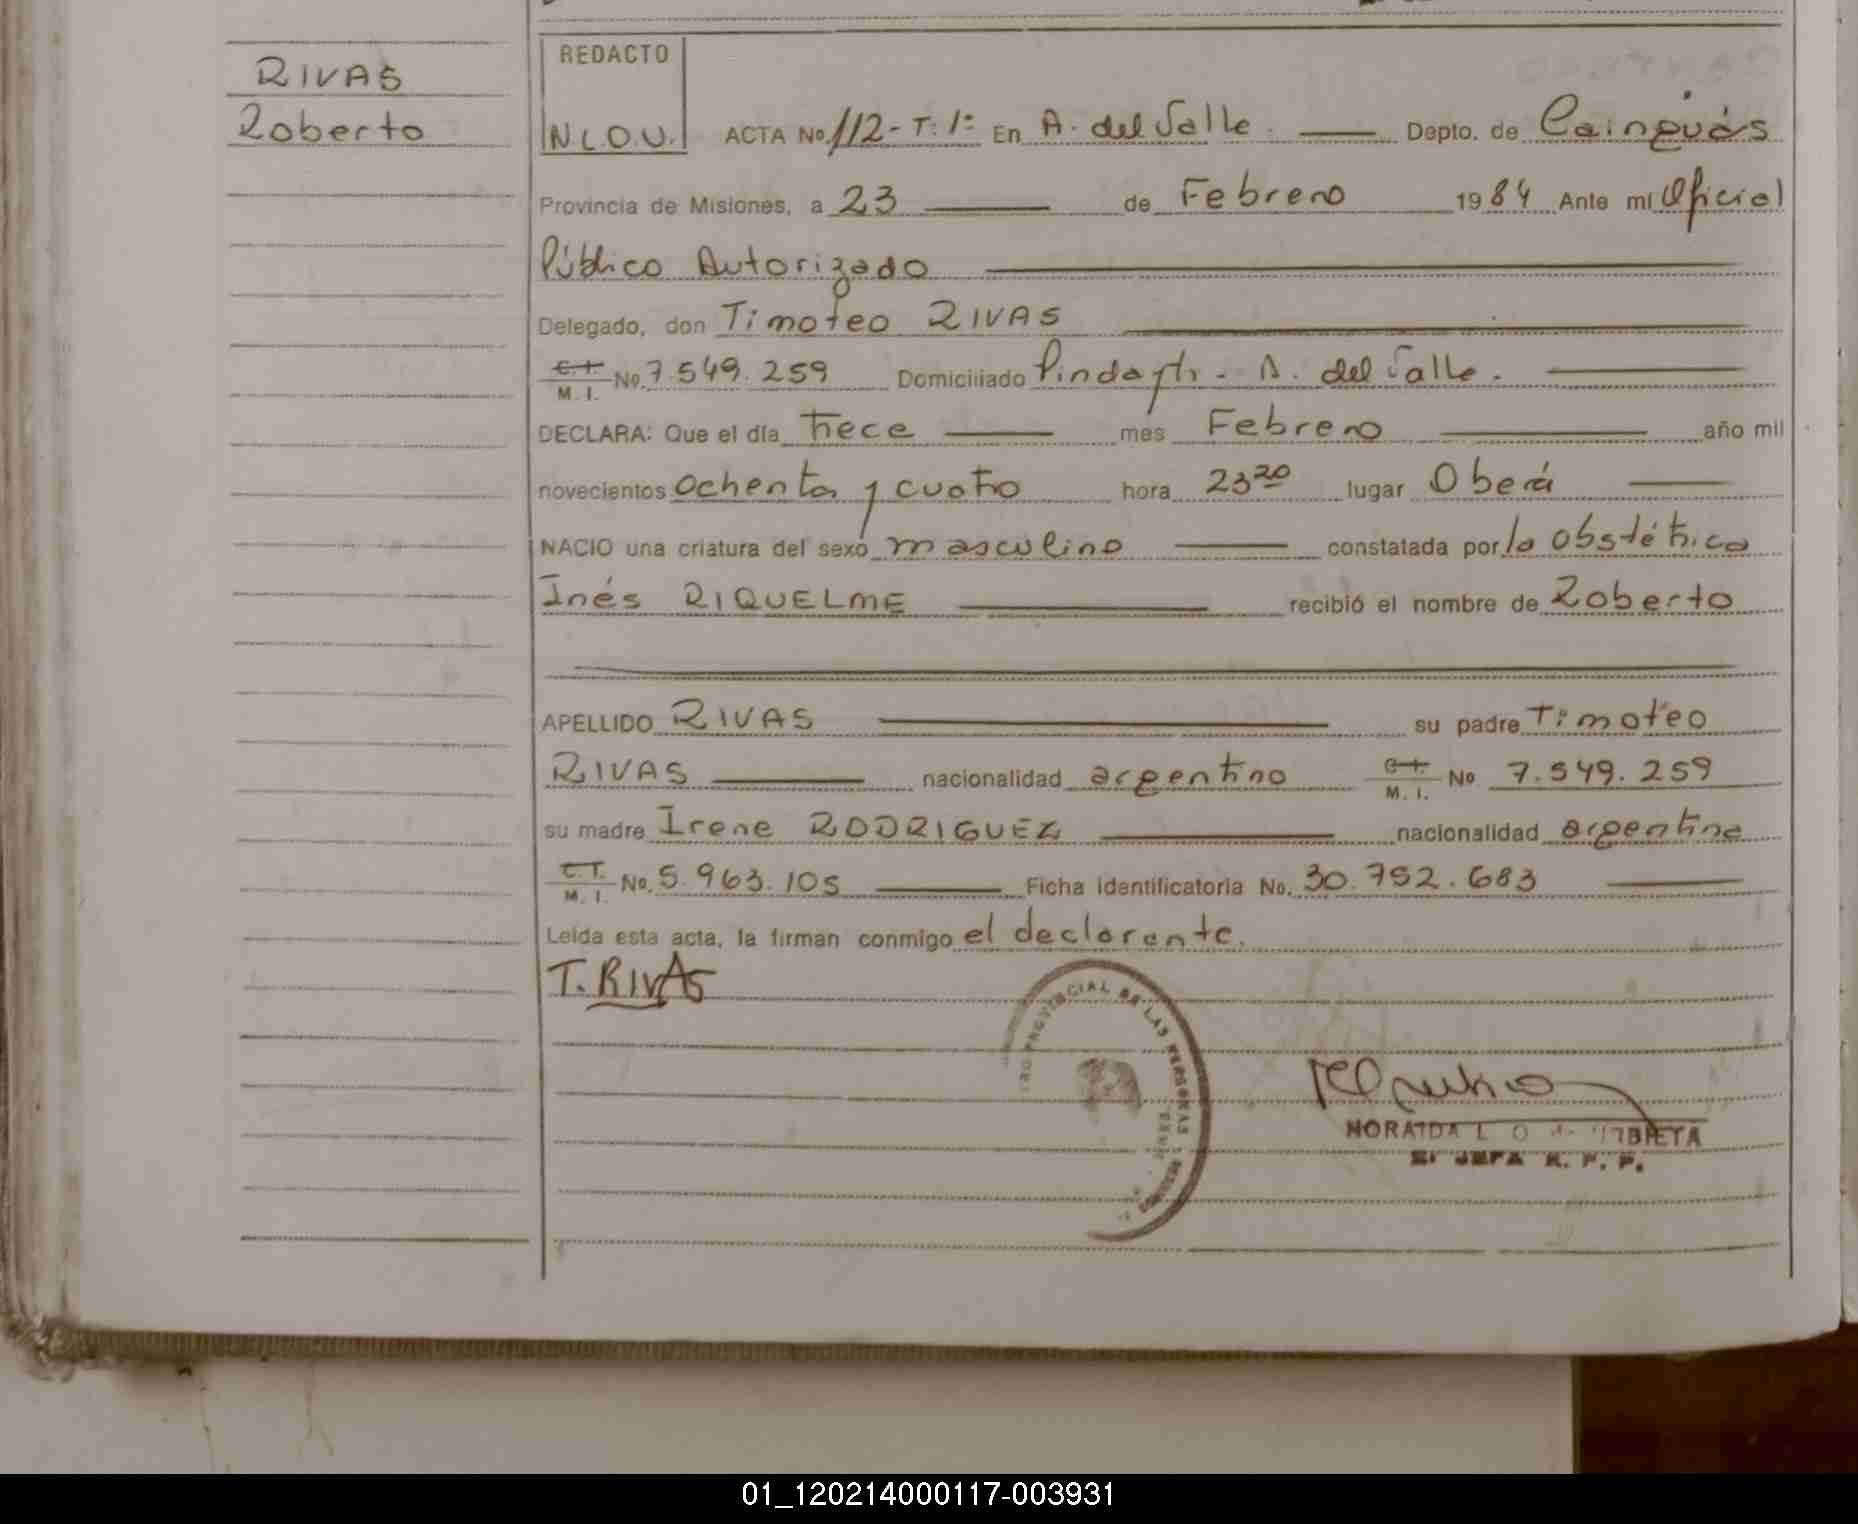 RIVAS
Roberto
REDACTO
N.L.O.U.
ACTA No. 112- T: 1º En A. del Valle. Depto. de Cainguás
Provincia de Misiones, a 23 de Febrero 1984 Ante mí Oficial
Público Autorizado
Delegado, don Timoteo RIVAS
C.I. M. I. No. 7.549.259 Domiciliado Pindayti - A. del Valle.
DECLARA: Que el día trece mes Febrero año mil
novecientos ochenta y cuatro hora 23 20 lugar Oberá
NACIO una criatura del sexo masculino constatada por la obstétrica
Inés RIQUELME recibió el nombre de Roberto
APELLIDO RIVAS su padre Timoteo
RIVAS nacionalidad argentino C.I. M. I. No 7.549.259
su madre Irene RODRIGUEZ nacionalidad argentina
C.I. M. I. No. 5.963.105 Ficha Identificatoria No. 30.752.683
Leída esta acta, la firman conmigo el declarante.
T. RIVAS
PROVINCIAL DE LAS PERSONAS
NORAIDA L. O. de URBIETA
JEFA R. P. P.
01_120214000117-003931